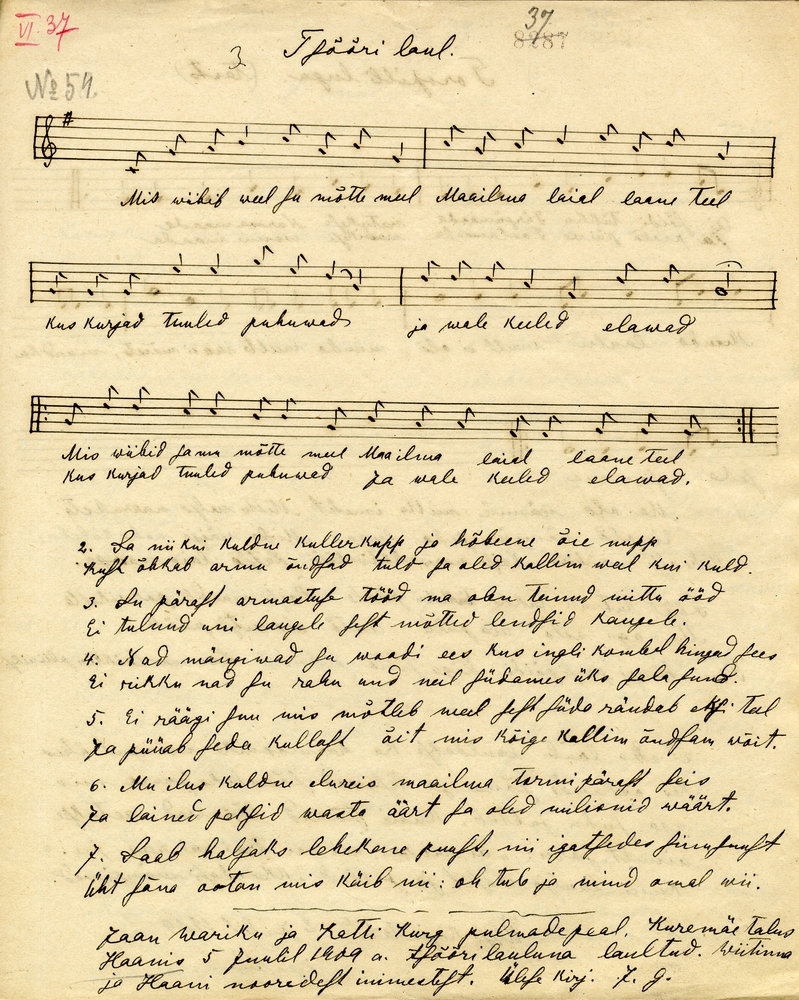 VI. 37
37
8287
3. Tsõõri laul.
№ 54.
Mis wiibib weel su mõtte meel Maailma laial laane teel
kus kurjad tuuled puhuwad ja wale keeled elawad
Mis wiibid sa mu mõtte meel Maailma laial laane teel
kus kurjad tuuled puhuwad ja wale keeled elawad.
2. Sa nii kui kuldne kullerkupp ja hõbeene õie nupp
kust õhkab armu õndsad tuld sa oled kallim weel kui kuld.
3. Su pärast armastuse tööd ma olen teinud mittu ööd
Ei tulnud uni laugele sest mõtted lendsid kaugele.
4. Nad mängiwad su woodi ees kus ingli kombel hingad sees
Ei rikku nad su rahu und neil südames üks sala sund.
5. Ei räägi suu mis mõtleb meel sest süda rändab eksi teel
Ja püüab seda kullast õit mis kõige kallim õndsam wõit.
6. Mu ilus kuldne elureis maailma tormi pärast seis
Ja lained peksid wasta äärt sa oled milionid wäärt.
7. Saab haljaks lehekene puust, nii igatsedes sinu suust
Üht sõna ootan mis käib nii: oh tule ja mind omal wii.
Jaan Wariku ja Katti Kurg pulmade peal, Kuremäe talus
Haanis 5 Juulil 1909 a. tsõõri lauluna laultud. Wiitinna
ja Haani nooredest inimestest. Ülesse kirj. J. G.